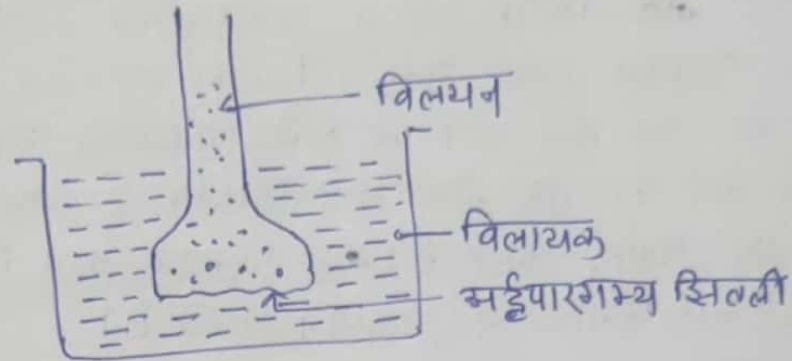 विलयन
विलायक
अर्द्धपारगम्य झिल्ली